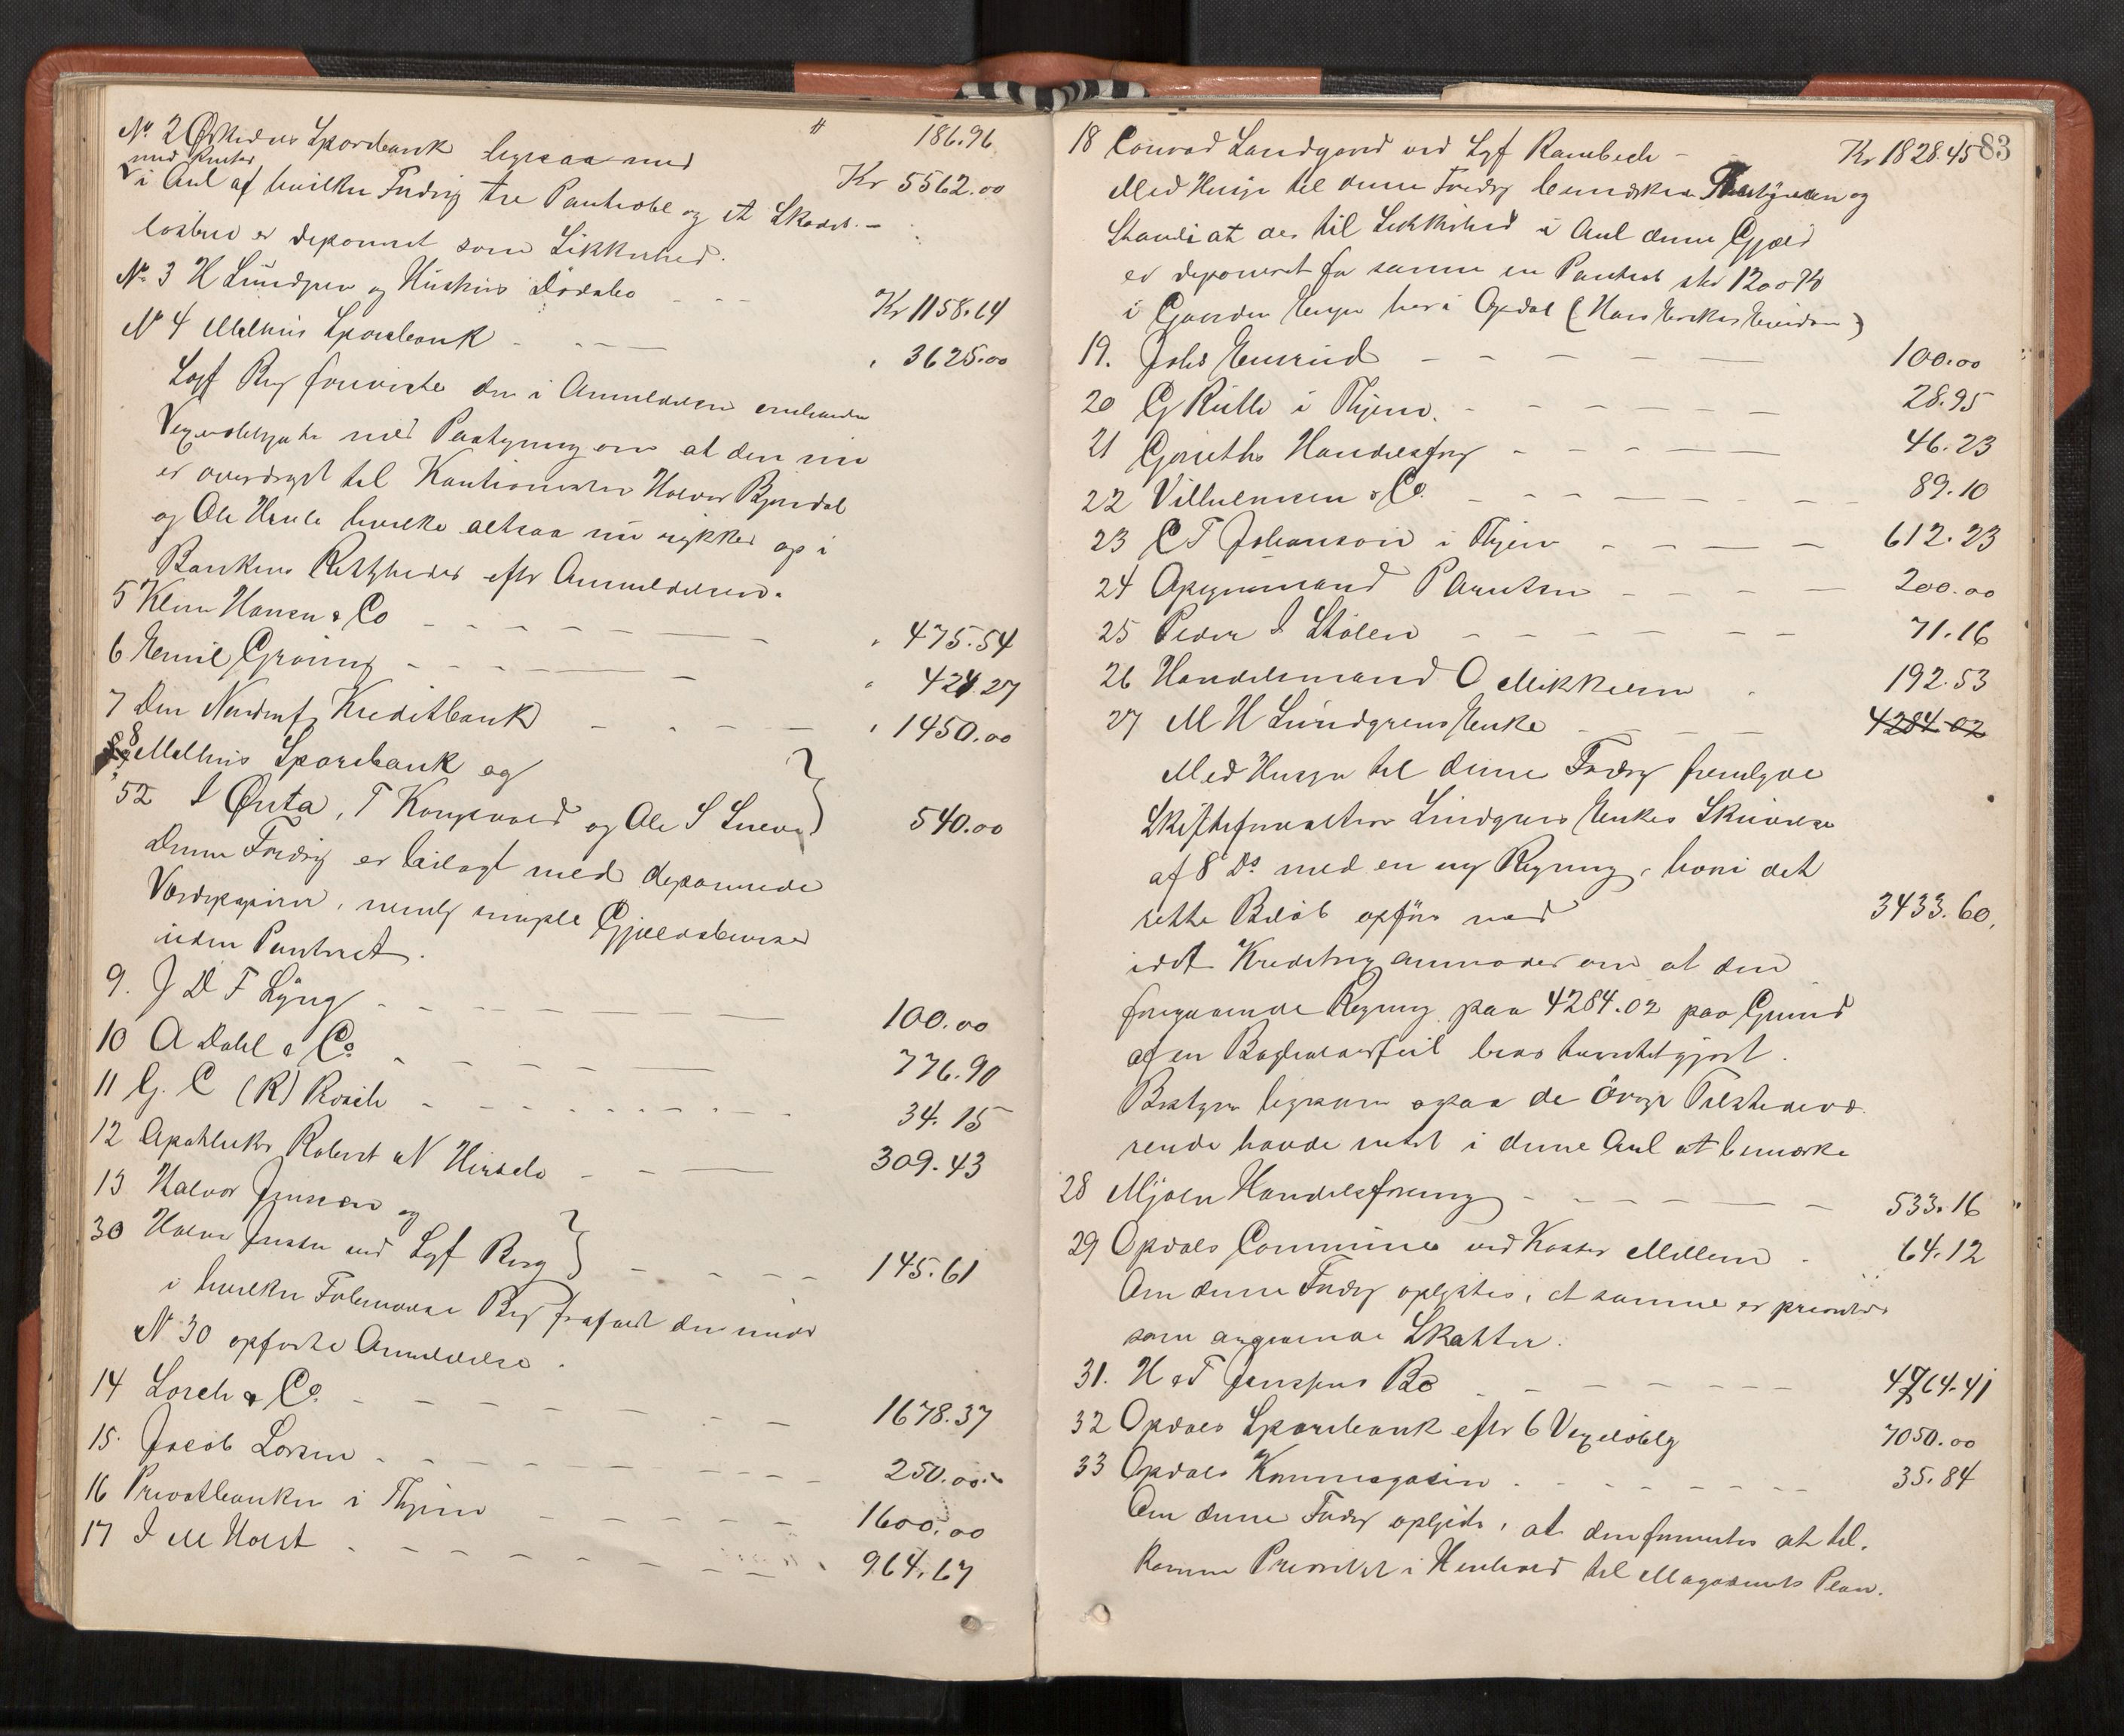 No. 2 Ørkedals Sparebank ligesaa med " 186.96
med Renter Kr 5562.00
i Anl af hvilken Fordrig tre Panteobl og et Skades-
løsbrev er deponeret som Sikkerhed.
No. 3 H Lundgren og Huskins Dödsbo - - - Kr 1158.64
No 4 Melhus Sparebank - - - " 3625.00
Sagf Berg foreviste den i Anmeldelsen omhandlede
Vexelobligation med Paategning om at den nu
er overdraget til Kautionisterne Halvor Bjørndal
og Ole hvilke altsaa nu rykker op i
Bankens Rettigheder efter Anmeldelsen.
5 Klem Hansen & Co - - - " 475.54
6 Emil Gröning - - - " 424.27
7 Den Nordenf. Kreditbank - - - " 1450.00
8 Melhus Sparebank og
52 I Ørsta, T Kongsvold og Ole S 540.00
Denne Fordrig er bilagt med deponerede
Værdipapirer, nemlig simple Gjældsbeviser
uden Panteret.
9. J D F Lÿng - - - 100.00
10 A Dahl & Co. - - - 776.90
11 G. C (R) - - - 34.15
12 Apotheker Robert N - - - 309.43
13 Halvor Jenssen og
30 Halvor Jenssen ved Sgf Berg - - - 145.61
i hvilken Berg frafaldt den under
N 30 opførte Anmeldelse.
14 Lorck & Co. - - - 1678.37
15. Jacob Larsen - - - 250.00
16 Privatbanken i Thjem - - - 1600.00
17 I M Holst - - - 964.67
83
18 Conrad Landgard ved Sgf Rambech - - Kr 1828.45
Med Hensyn til denne Fordrg bemærkede Bestyreren og
at der til Sikkerhed i Anl denne Gjæld
er deponeret for samme en Panteobl stor 1200 Kr
i Gaarden Engen her i Opdal (Hans
19. Johs - - - 100.00
20 G i Thjem. - - - 28.95
21 Handelsforg - - - 46.23
22 Vilhelmsen & Co. - - - 89.10
23 C T Johansson i Thjem - - - 612.23
24 Opsynsmand P Arntsen - - - 200.00
25 Peder I Stölen - - - 71.16
26 Handelsmand O Mikkelsen - 192.53
27 M H Lundgrens Enke - - - 4284.02
Med Hensyn til denne Fordrg fremlagde
Skifteforvalteren Lundgrens Enkes Skrivelse
af 8 Ds med en ny Regning, hvori det
rette Beløb opføres med 3433.60,
idet Kreditrix anmoder om at den
foregaaende Regning paa 4284.02 paa Grund
af en Bogholderfeil blev tilintetgjort.
Bestyreren ligesom ogsaa de övrige Tilstedevæ
rende havde intet i denne Anl at bemærke
28 Mjøen Handelsforening - - - 533.16
29 Opdals Commune ved Kasser Mellem - 64.12
Om denne Fordrg oplystes, at samme er prioriteret
som angaaende Skatter.
31. H & F Jenssens Bo - - - 4764.41
32 Opdals Sparebank efter 6 Vexeloblg 7050.00
33 Opdals Kornmagasin - - - 35.84
Om denne Fordrg oplystes, at den formentes at til-
komme Prioritet i Henhold til Magasinets Plan.